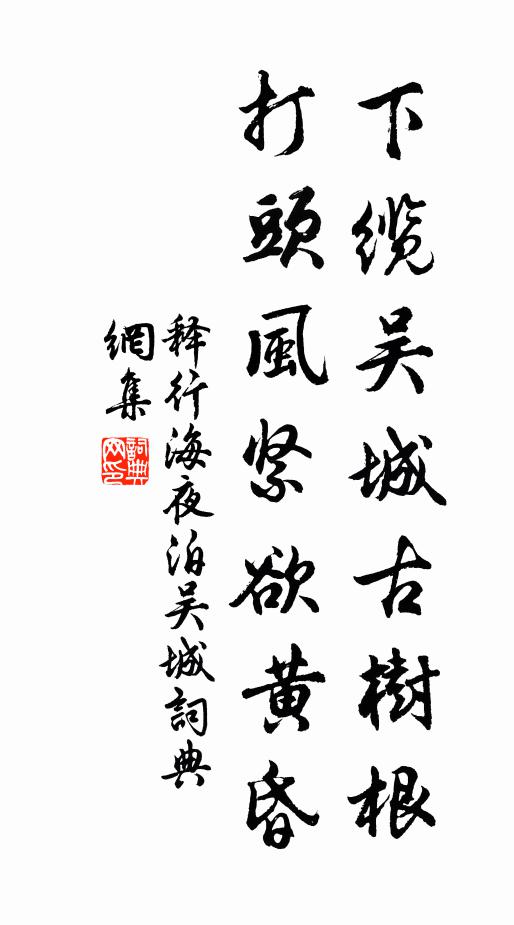 下缆吴城古樹根
打頭風紧欲黄昏
释行海夜泊吴城詞典
網集
詞典
网印